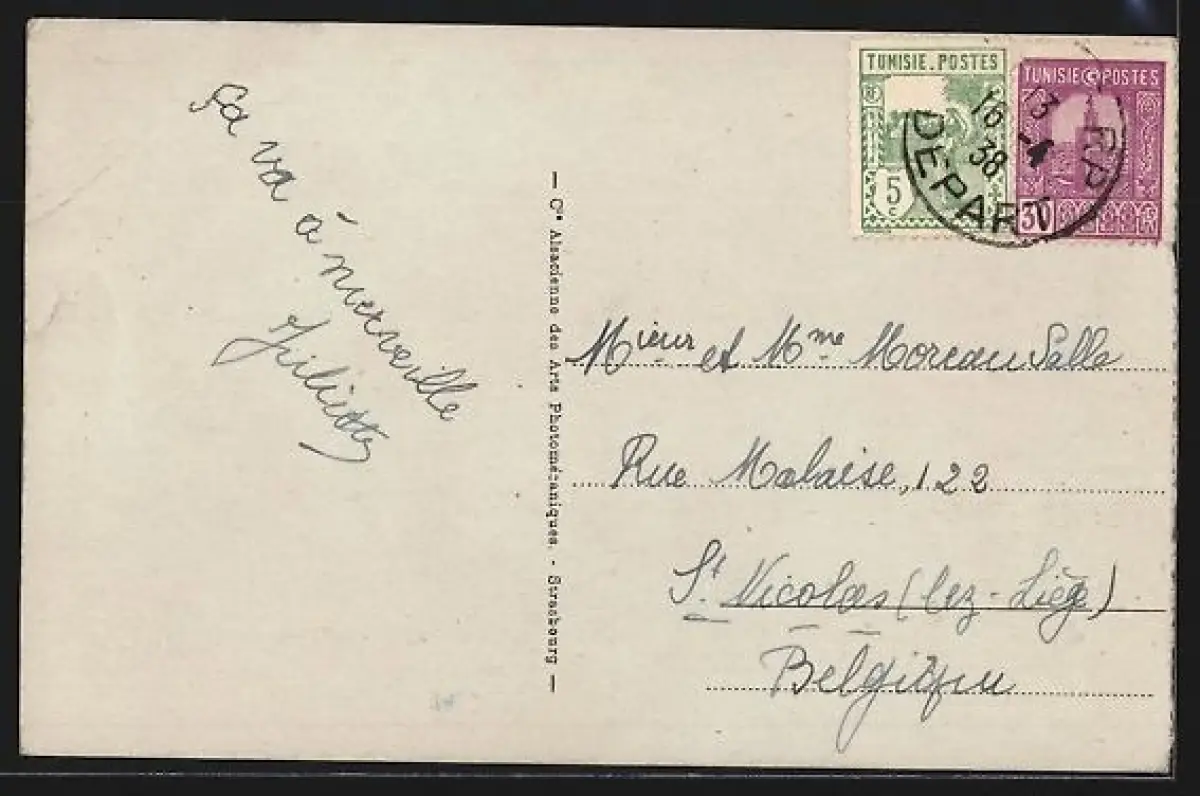 TUNISIE.POSTES
5
c
TUNISIE POSTES
30
16 13
-4
38
DÉPART
RP
Sa va à merveille
Juliette
— Cie Alsacienne des Arts Photomécaniques. - Strasbourg —
Mieur et Mme Moreau Salle
Rue Malaise, 122
St Nicolas (lez-Liège)
Belgique